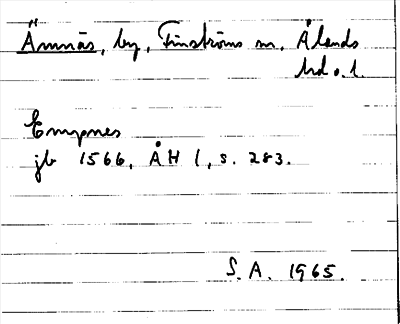 Ämnäs, by, Finströms sn, Ålands
hd o. l.
Empnes
jb 1566, ÅH 1, s. 283.
S. A. 1965.